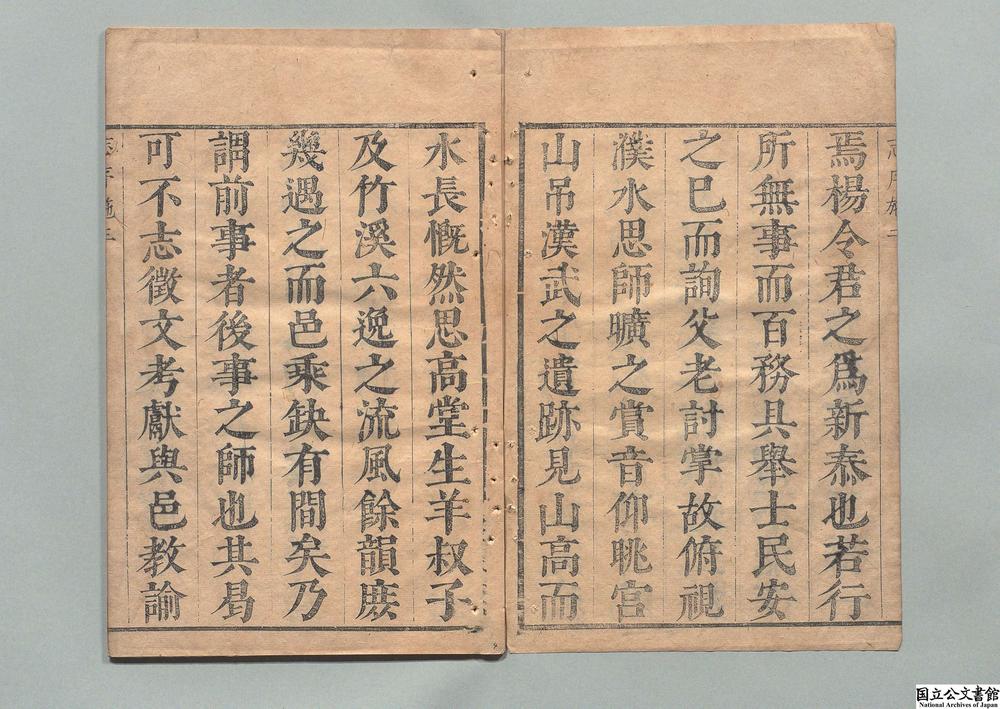 焉楊令君之爲新泰也若行
所無事而百務具舉士民安
之已而詢父老討掌故俯視
濮水思師曠之賞音仰眺宮
山吊漢武之遺跡見山高而
水長慨然思高堂生羊叔子
及竹溪六逸之流風餘韻庻
幾遇之而邑乘缺有間矣乃
謂前事者後事之師也其曷
可不志徵文考獻與邑教諭
国立公文書館
National Archives of Japan